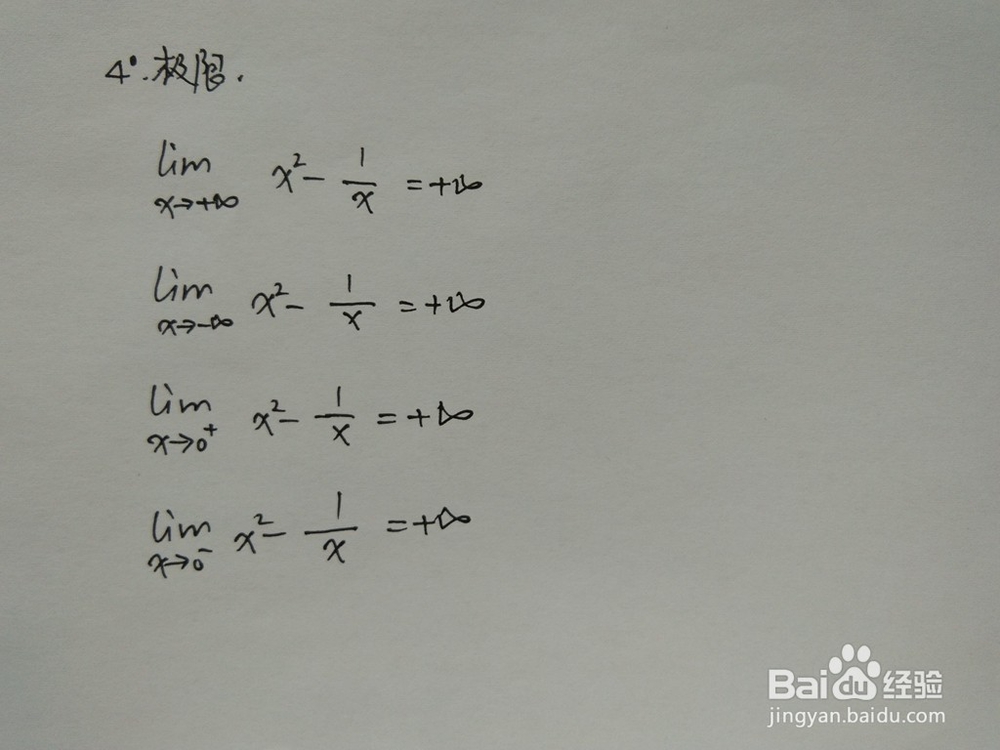 4°. 极限.
lim x→+∞ x² - 1/x = +∞
lim x→-∞ x² - 1/x = +∞
lim x→0⁺ x² - 1/x = +∞
lim x→0⁻ x² - 1/x = +∞
Baidu 经验
jingyan.baidu.com